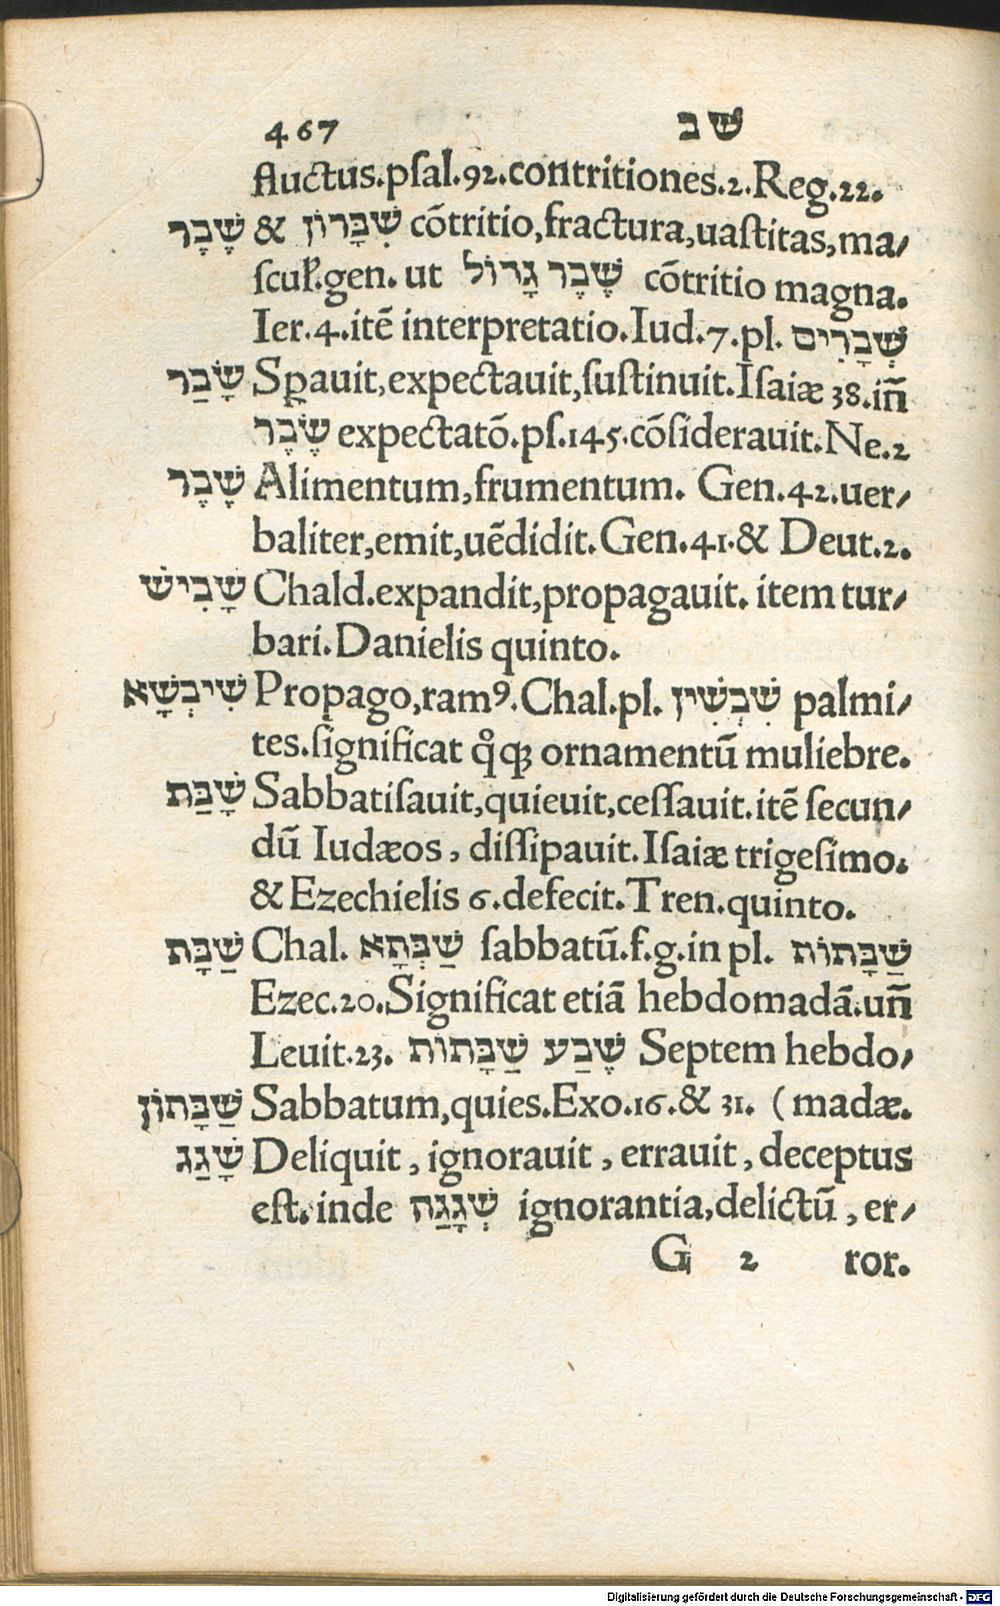 467 שב
fluctus.psal.92.contritiones.2.Reg.22.
שֶׁבֶר & שִׁבָּרוֹן cōtritio,fractura,uastitas,ma/
scul.gen. ut שֶׁבֶר גָּדוֹל cōtritio magna.
Ier.4.itē interpretatio.Iud.7.pl. שְׁבָרִים
שָׂבַר Sꝑauit,expectauit,sustinuit.Isaiæ 38.iñ
שֵׂבֶר expectatō.ps.145.cōsiderauit.Ne.2
שֶׁבֶר Alimentum,frumentum. Gen.42.uer/
baliter,emit,uēdidit.Gen.41.& Deut.2.
שָׁבִישׁ Chald.expandit,propagauit. item tur/
bari.Danielis quinto.
שִׁיבְשָׁא Propago,ramꝰ.Chal.pl. שִׁבְשִׁין palmi/
tes.significat qͦqꝫ ornamentū muliebre.
שָׁבַת Sabbatisauit,quieuit,cessauit.itē secun/
dū Iudæos, dissipauit.Isaiæ trigesimo.
& Ezechielis 6.defecit.Tren.quinto.
שַׁבָּת Chal. שַׁבְּתָא sabbatū.f.g.in pl. שַׁבָּתוֹת
Ezec.20.Significat etiā hebdomadā.uñ
Leuit.23. שֶׁבַע שַׁבָּתוֹת Septem hebdo/
שַׁבָּתוֹן Sabbatum,quies.Exo.16.& 31. (madæ.
שָׁגַג Deliquit, ignorauit, errauit, deceptus
est.inde שְׁגָגַה ignorantia,delictū, er/
G 2 ror.
Digitalisierung gefördert durch die Deutsche Forschungsgemeinschaft - DFG